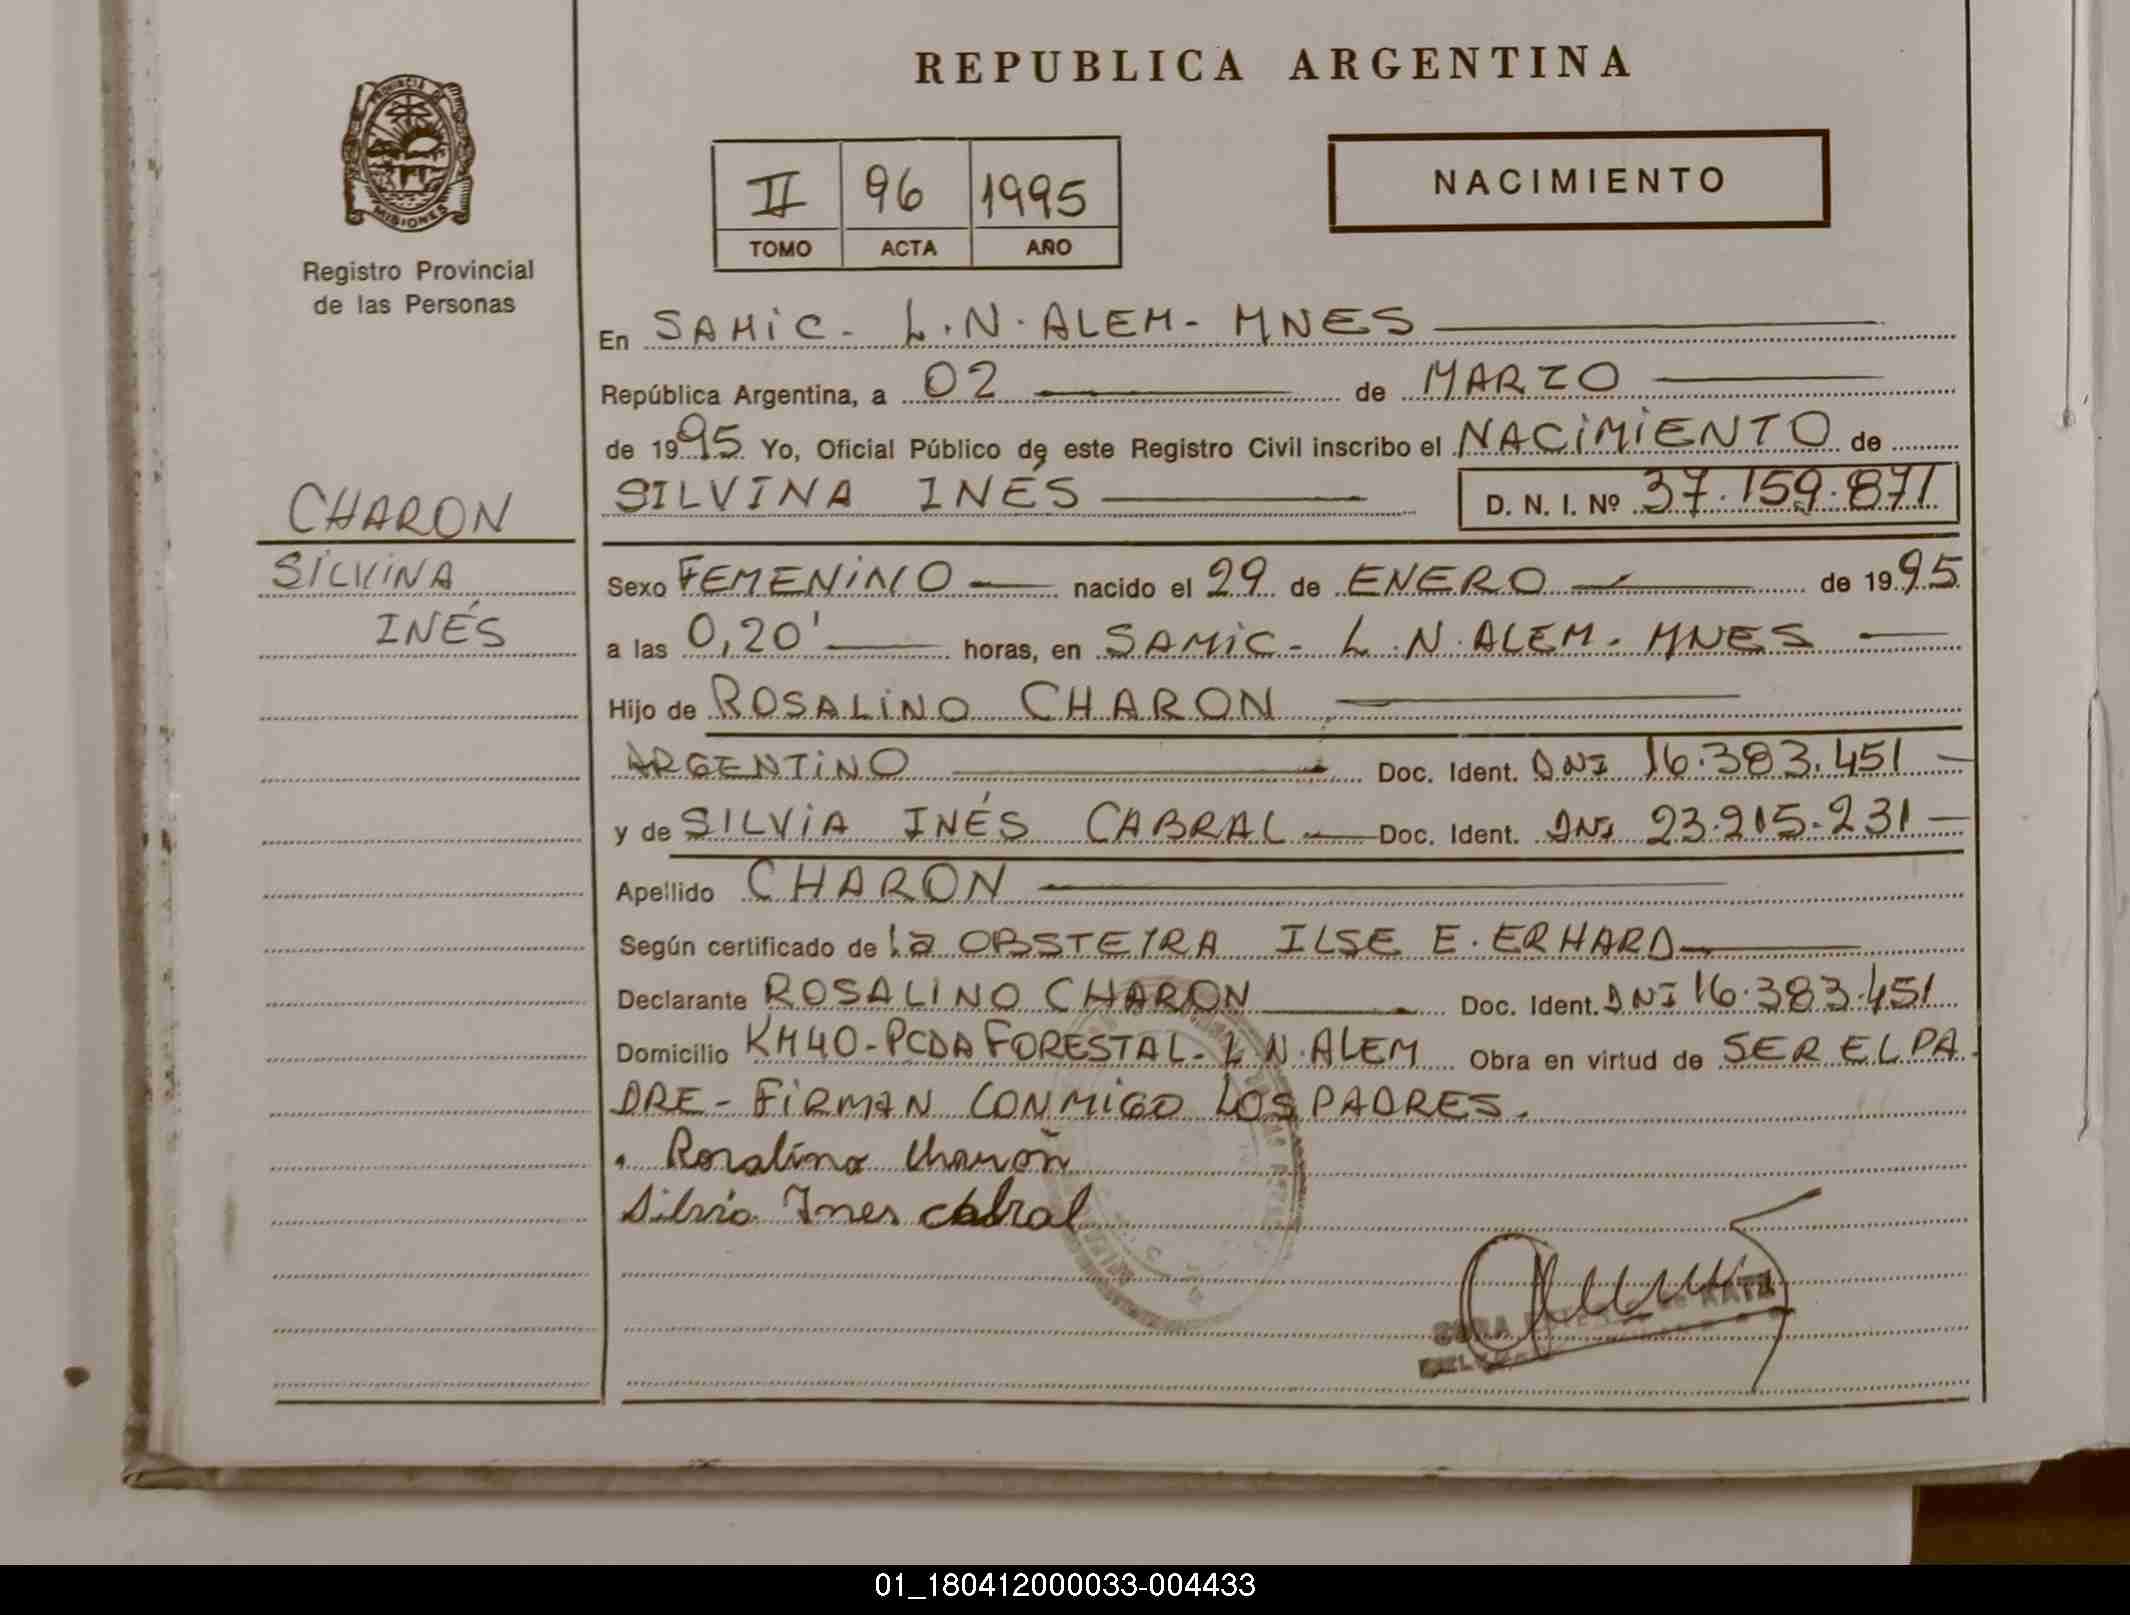 REPUBLICA ARGENTINA
PROVINCIA DE
MISIONES
Registro Provincial
de las Personas
II 96 1995
TOMO ACTA AÑO
NACIMIENTO
En SAMIC - L.N. ALEM - MNES
República Argentina, a 02 de MARZO
de 1995 Yo, Oficial Público de este Registro Civil inscribo el NACIMIENTO de
SILVINA INÉS D. N. I. Nº 37.159.871
CHARON
SILVINA
INÉS
Sexo FEMENINO nacido el 29 de ENERO de 1995
a las 0,20' horas, en SAMIC - L.N. ALEM - MNES
Hijo de ROSALINO CHARON
ARGENTINO Doc. Ident. DNI 16.383.451
y de SILVIA INÉS CABRAL Doc. Ident. DNI 23.215.231
Apellido CHARON
Según certificado de la OBSTETRA ILSE E. ERHARD
Declarante ROSALINO CHARON Doc. Ident. DNI 16.383.451
Domicilio KM40 - PCDA FORESTAL - L.N. ALEM Obra en virtud de SER EL PA
DRE - FIRMAN CONMIGO LOS PADRES.
Rosalino Charon
Silvia Ines cabral
01_180412000033-004433